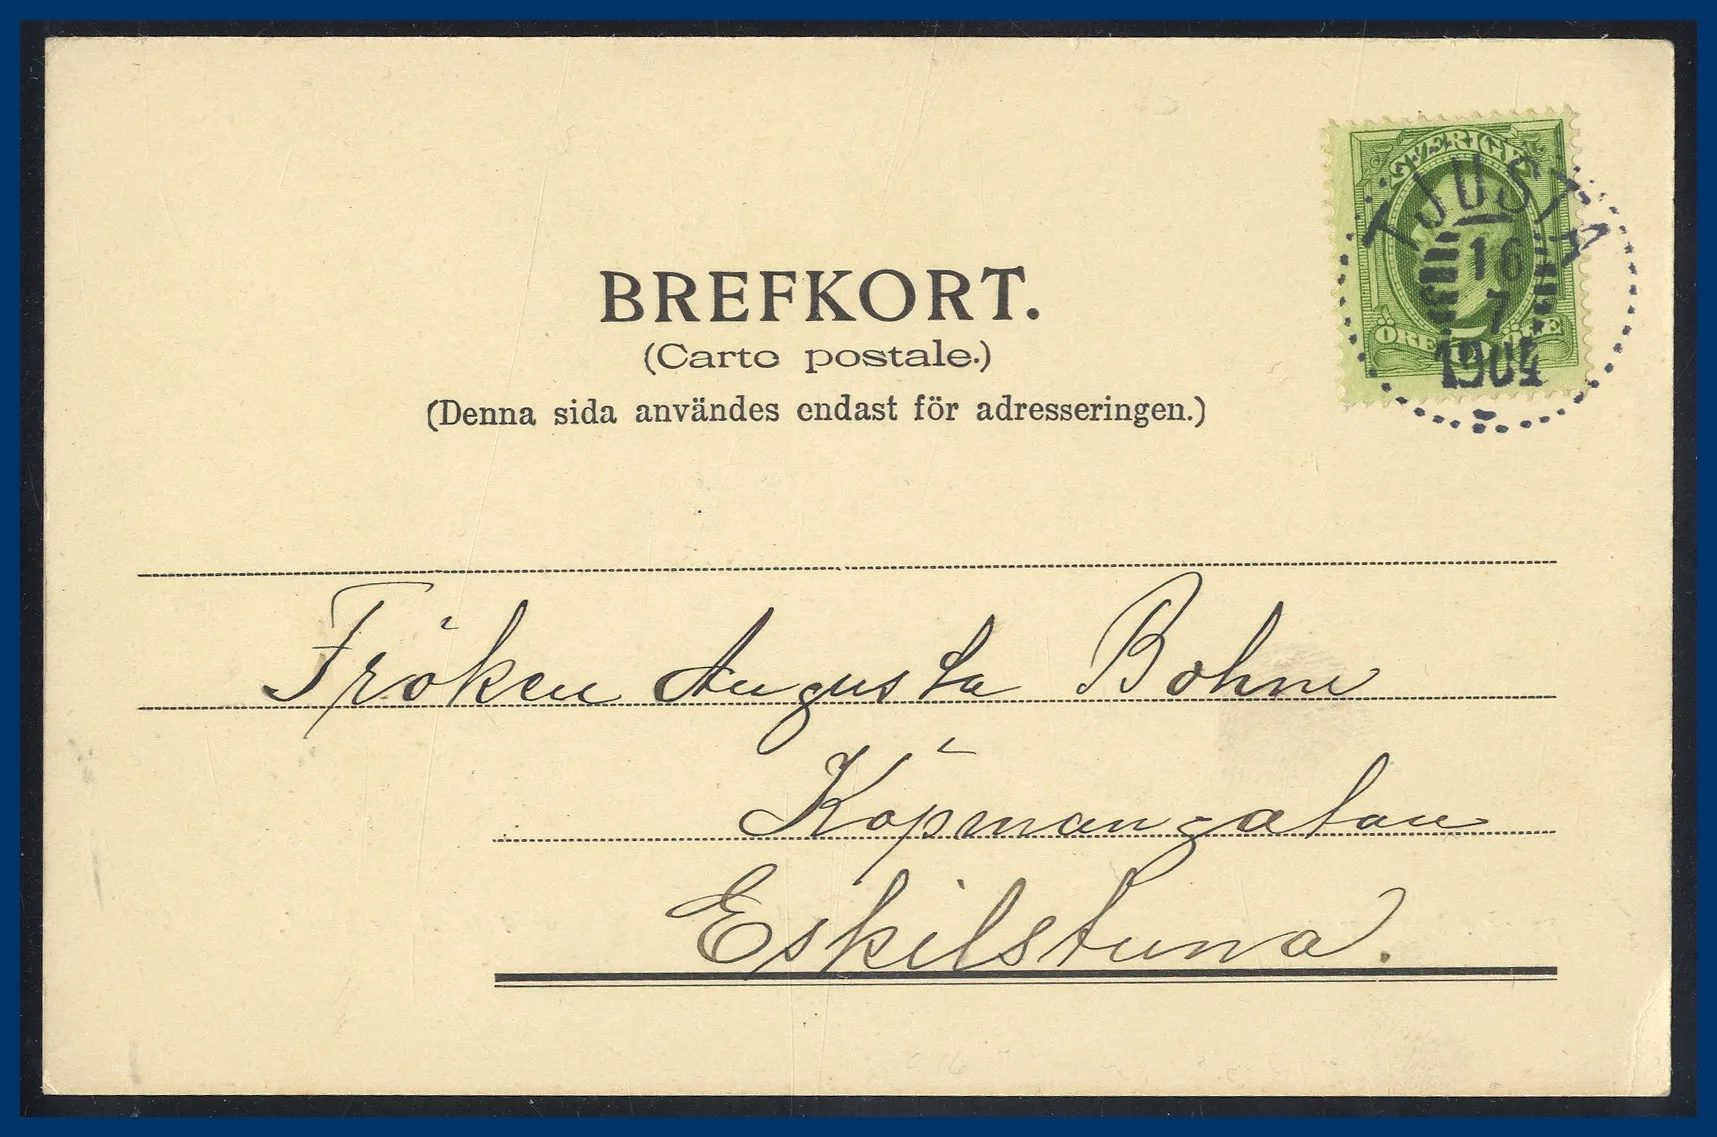 SVERIGE
TJUSTA
16
7
1904
ÖRE 5 ÖRE
BREFKORT.
(Carte postale.)
(Denna sida användes endast för adresseringen.)
Fröken Augusta Bohm
Köpmangatan
Eskilstuna.